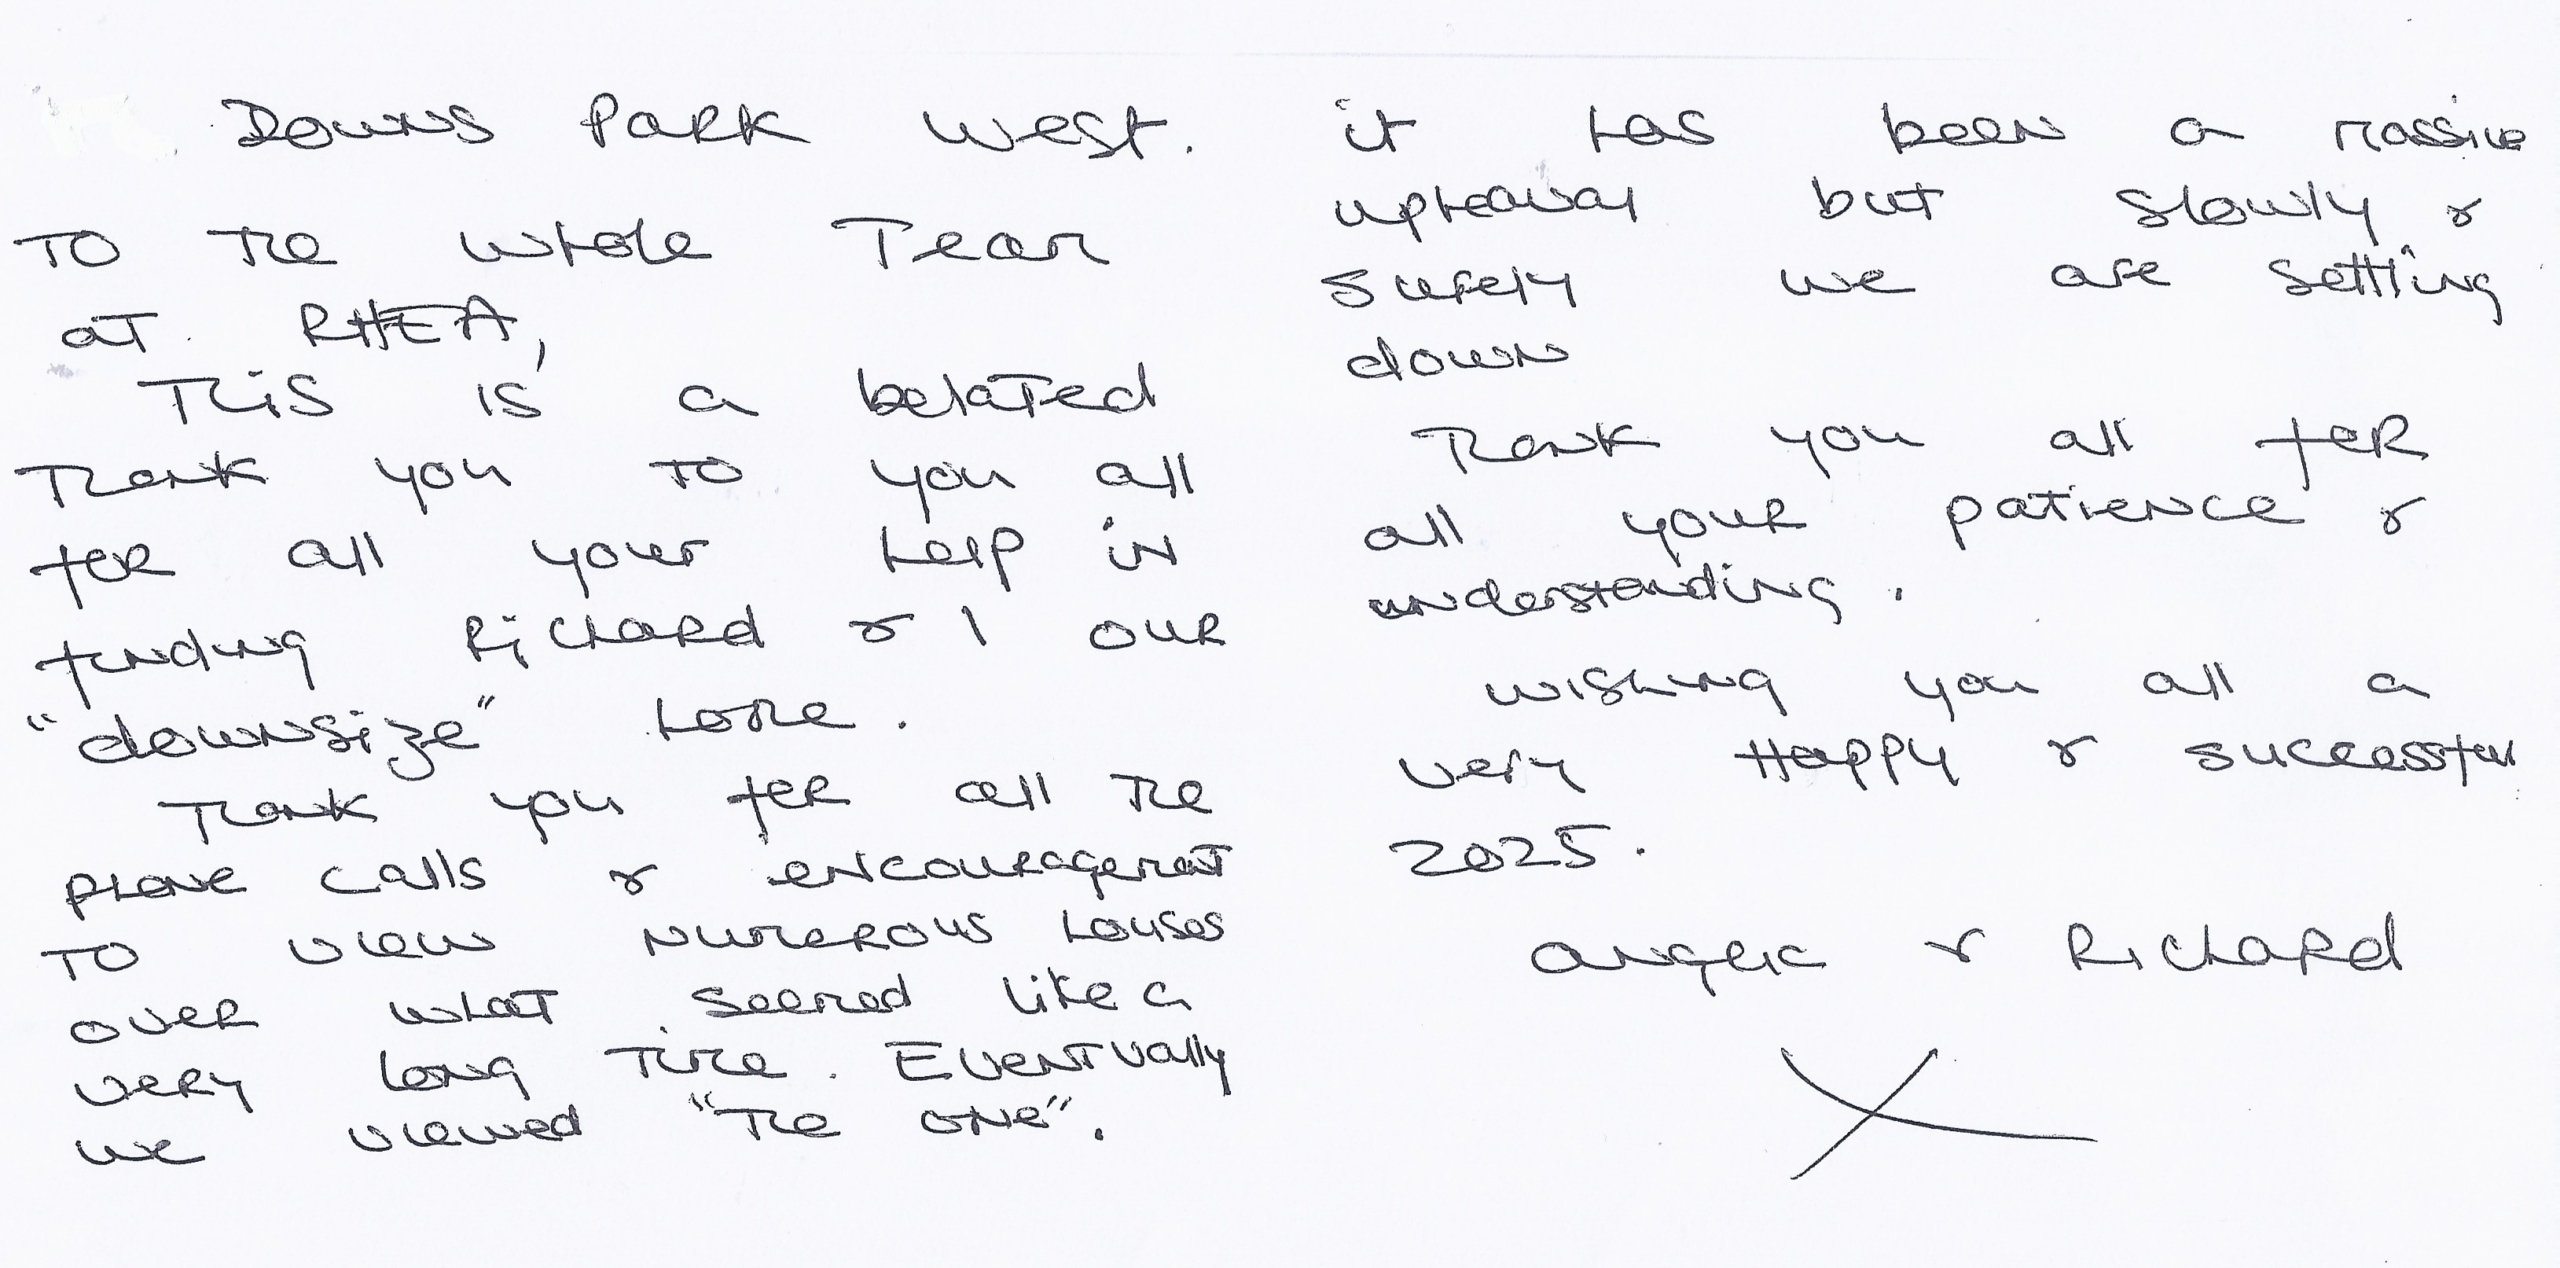 Downs Park West.
To the whole Team
at RHEA,
This is a belated
Thank you to you all
for all your help in
finding Richard & I our
"downsize" home.
Thank you for all the
phone calls & encouragement
to view numerous houses
over what seemed like a
very long time. Eventually
we viewed "The one".
it has been a massive
upheaval but slowly &
surely we are settling
down
Thank you all for
all your patience &
understanding.
Wishing you all a
very Happy & successful
2025.
Angela & Richard
X